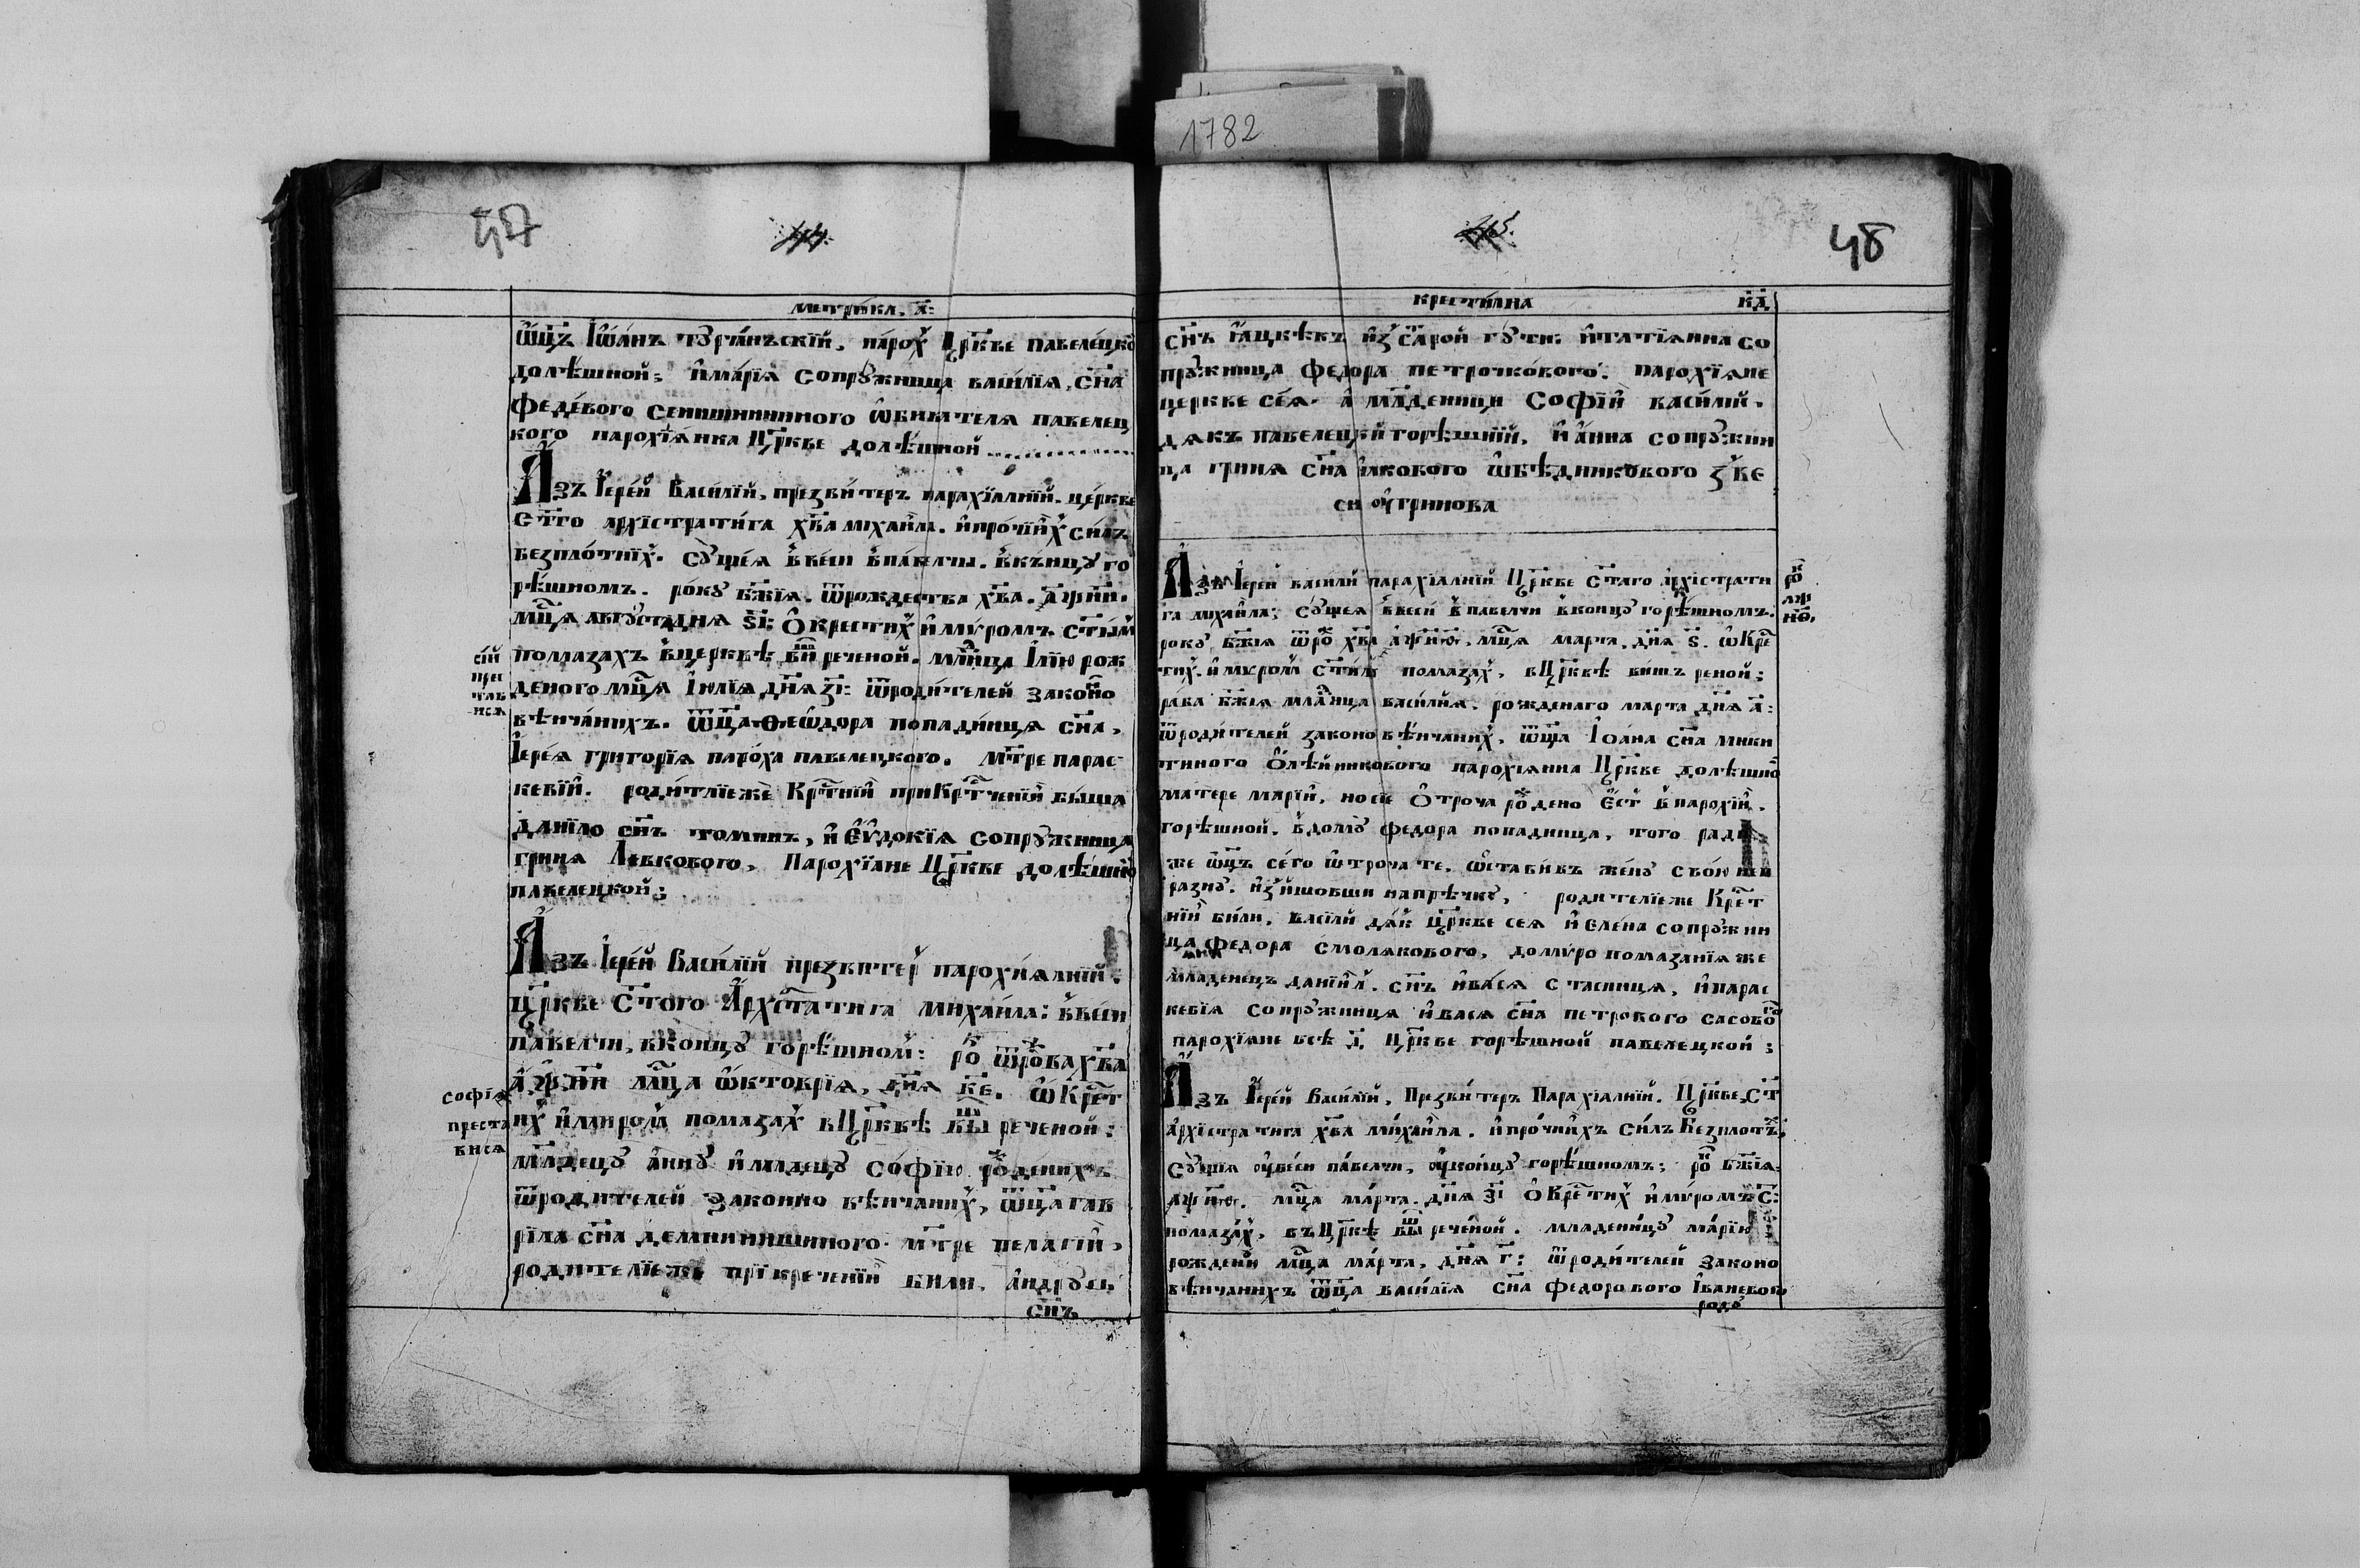 1782
47
44
метрика. а҃:
ѿц҃ъ Іѡанъ туранъскїй, парох црк҃ве павелецко
долѣшной; и марїѧ сопружница василїѧ, сн҃а
федевого сенишининного ѡбивателѧ павелец
кого парохїѧнка црк҃ве долѣшной
Азъ Іерей Василїй, презвитеръ парахїалнїй. церкве
ст҃го архїстратига хв҃а міхаила. и прочїих силъ
безплотних. сущеѧ в веси в павелчи. в кънцу го
рѣшномъ. року бж҃їѧ. ѿ рождества хв҃а. аѱн҃и.
мц҃ѧ августа днѧ ѕ҃і: Ѡкрестих и мѵромъ ст҃ым
помазахъ в церквѣ виш реченой. млнца Ілїю рож
деного мц҃ѧ Іюлїѧ дн҃ѧ з҃і: ѿ родителей законо
вѣнчанихъ. ѿц҃а Ѳеѡдора попадинцѧ сн҃а,
Іереѧ григорїѧ пароха павелецкого. мт҃ре парас
кевїй. родитлїеже крт҃нїй при крт҃ченїй выша
данїло сн҃ъ томинъ, и Еѵдокїѧ сопружница
гринѧ Левкового, парохїане црк҃ве долѣшно
павелецкой;
сїй
прес
тав
исѧ
Азъ Іерей Василїй презвитер парохиѧлнїй:
црк҃ве ст҃ого Архст҃атига михаила: в веси
павелчи, в концу горѣшном: ро ѿ рова хв҃а
аѱн҃и мц҃а ѡктоврїѧ, днѧ к҃е. ѡкрет
их и миром помазах в црк҃вѣ вы реченой:
младецу анну и младецу Софїю рдених
ѿ родителей законно вѣнчаних, ѿц҃а гав
рїла сн҃а деминишиного. мт҃ре пелагїи,
родителїеже при креченїй били, андрусь
сн҃ъ
Софїѧ
преста
висѧ
45.
48
крестилна
к҃д
сн҃ъ ѧцкѣвъ из старой гути: и татїѧнна со
пружница федора петрочкового. парохїѧне
церкве сеѧ. а младеници Софїи василїй.
дѧкъ павелецкй горѣшнїй, и анна сопружни
ца гринѧ сн҃а илкового ѡбѣдникового з ве
си оугринова
Азъ Іерей васили парахїалнїй црк҃ве ст҃аго архїстрати
га міхаила; сущеѧ в веси в павелчи в концу горѣшномъ.
року бж҃їѧ ѿ ро хв҃а аѱн҃ѳ, мц҃ѧ марта, днѧ ѕ҃. ѡкре
тих. и муром ст҃им помазах, в црк҃вѣ вишъ реной;
рава бж҃їѧ млнца василиѧ. рожденаго марта днѧ а҃:
ѿ родителей законо вѣнчаних, ѿц҃а Іоана сн҃а мики
тиного Олѣйникового парохїѧнна црк҃ве долѣшно
матере марїи, носїе отроча рдено ест в парохїи.
горѣшной. в дому федора попадинца, того ради
же ѿц҃ъ сего ѡтроча те. ѡставивъ жену свою не п
разну. изишовши напрѣчку, родителїеже Крет
нїи били, василй дѧк црк҃ве сеѧ и Елена сопружни
ца федора смолѧкового, до муропомазанїѧ же
младенецъ данїил. сн҃ъ ивасѧ стасицѧ, и парас
кевїѧ сопружницѧ ивасѧ сн҃а петрового сасово
парохїѧне всѣ д҃. црк҃ве горѣшной павелецкой;
Азъ Іерей Василїй, Презвитеръ Парахїалнїй. црк҃ве, ст҃
архїстратига хв҃а михаила. и прочїихъ силъ Безплотъ,
Сущїѧ оу веси павелчи, оу концу горѣшномъ; ро бж҃їѧ,
аѱн҃ѳ. мц҃а марта. днѧ з҃і Ѡкретих и мѵромъ с҃:
помазах, въ црк҃ѣ вы реченой. младеницу марїю
рождени мц҃а марта, днѧ г҃: ѿ родителей законо
вѣнчанихъ ѿц҃а василїѧ сн҃а федорового Іваневого
роду